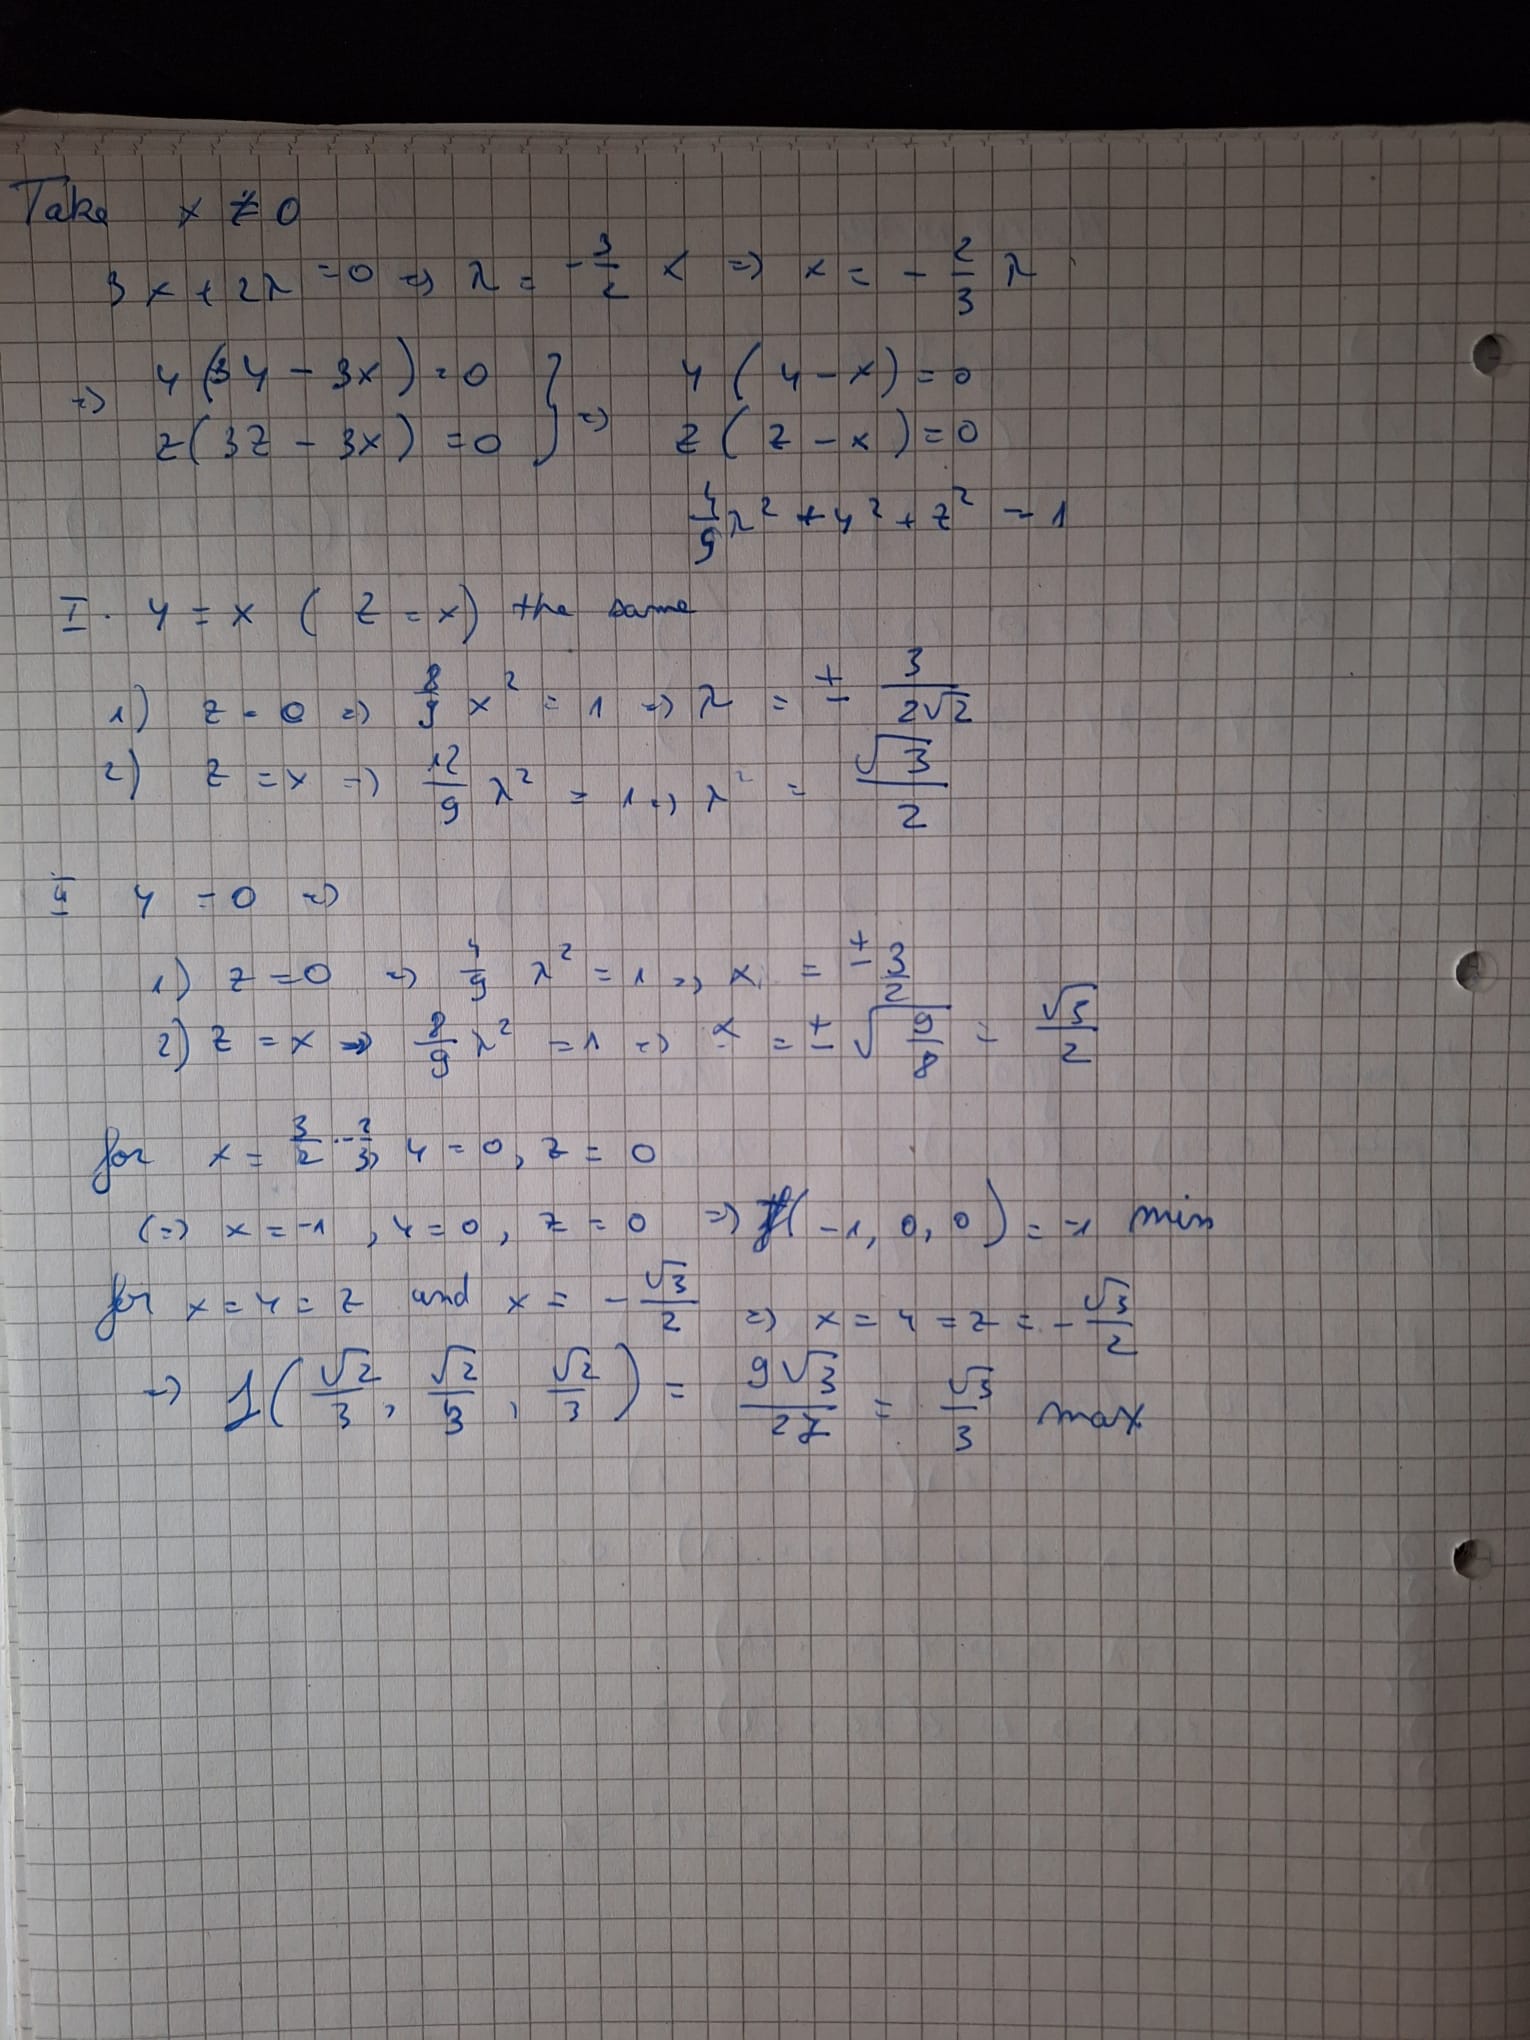 Take x ≠ 0
3x + 2λ = 0 => λ = -3/2 x => x = -2/3 λ
=> y(3y - 3x) = 0 } => y(y - x) = 0
z(3z - 3x) = 0 z(z - x) = 0
4/9 λ² + y² + z² = 1
I. y = x (z = x) the same
1) z = 0 => 8/9 x² = 1 => λ = ± 3/(2√2)
2) z = x => 12/9 λ² = 1 => λ² = √3/2
II y = 0 =>
1) z = 0 => 4/9 λ² = 1 => x = ± 3/2
2) z = x => 8/9 λ² = 1 => x = ± √(9/8) = √3/2
for x = 3/2 · -2/3, y = 0, z = 0
(=> x = -1, y = 0, z = 0 => f(-1, 0, 0) = -1 min
for x = y = z and x = -√3/2 => x = y = z = -√3/2
=> f(√2/3, √2/3, √2/3) = 9√3/27 = √3/3 max